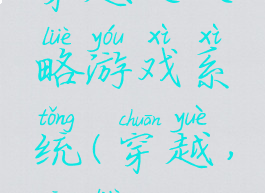 lüè yóu xì xì
略游戏系
tǒng chuān yuè
统(穿越,